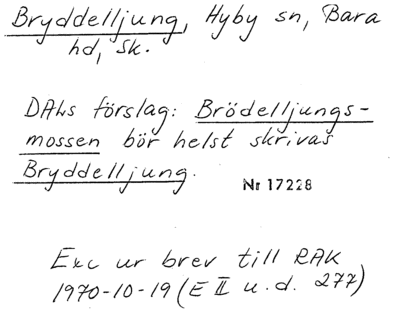 Bryddelljung, Hyby sn, Bara
hd, Sk.
DALs förslag: Brödelljungs-
mossen bör helst skrivas
Bryddelljung.
Nr 17228
Exc ur brev till RAK
1970-10-19 (E II u.d. 277)